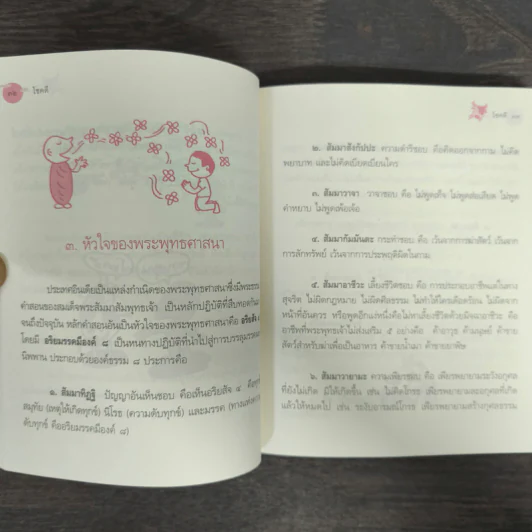 โชคดี
๓. หัวใจของพระพุทธศาสนา
ประเทศอินเดียเป็นแหล่งกำเนิดของพระพุทธศาสนาซึ่งมีพระธรรม
คำสอนของสมเด็จพระสัมมาสัมพุทธเจ้า เป็นหลักปฏิบัติที่สืบทอดกันมา
จนถึงปัจจุบัน หลักคำสอนอันเป็นหัวใจของพระพุทธศาสนาคือ อริยสัจ
โดยมี อริยมรรคมีองค์ ๘ เป็นหนทางปฏิบัติที่นำไปสู่การบรรลุมรรคผล
นิพพาน ประกอบด้วยองค์ธรรม ๘ ประการคือ
๑. สัมมาทิฏฐิ ปัญญาอันเห็นชอบ คือเห็นอริยสัจ ๔ คือทุกข์
สมุทัย (เหตุให้เกิดทุกข์) นิโรธ (ความดับทุกข์) และมรรค (ทางแห่งความ
ดับทุกข์ คืออริยมรรคมีองค์ ๘)
โชคดี
๒. สัมมาสังกัปปะ ความดำริชอบ คือคิดออกจากกาม ไม่คิด
พยาบาท และไม่คิดเบียดเบียนใคร
๓. สัมมาวาจา วาจาชอบ คือ ไม่พูดเท็จ ไม่พูดส่อเสียด ไม่พูด
คำหยาบ ไม่พูดเพ้อเจ้อ
๔. สัมมากัมมันตะ กระทำชอบ คือ เว้นจากการฆ่าสัตว์ เว้นจาก
การลักทรัพย์ เว้นจากการประพฤติผิดในกาม
๕. สัมมาอาชีวะ เลี้ยงชีวิตชอบ คือ การประกอบอาชีพแต่ในทาง
สุจริต ไม่ผิดกฎหมาย ไม่ผิดศีลธรรม ไม่ทำให้ใครเดือดร้อน ไม่ผิดจาก
หน้าที่อันควร หรือพูดอีกแง่หนึ่งคือไม่หาเลี้ยงชีวิตด้วยมิจฉาอาชีวะ คือ
อาชีพที่พระพุทธเจ้าไม่ส่งเสริม ๕ อย่างคือ ค้าอาวุธ ค้ามนุษย์ ค้าขาย
สัตว์สำหรับฆ่าเพื่อเป็นอาหาร ค้าขายน้ำเมา ค้าขายยาพิษ
๖. สัมมาวายามะ ความเพียรชอบ คือ เพียรพยายามระวังอกุศล
ที่ยังไม่เกิด มิให้เกิดขึ้น เช่น ไม่คิดโกรธ เพียรพยายามละอกุศลที่เกิด
แล้วให้หมดไป เช่น ระงับอารมณ์โกรธ เพียรพยายามสร้างกุศลธรรม